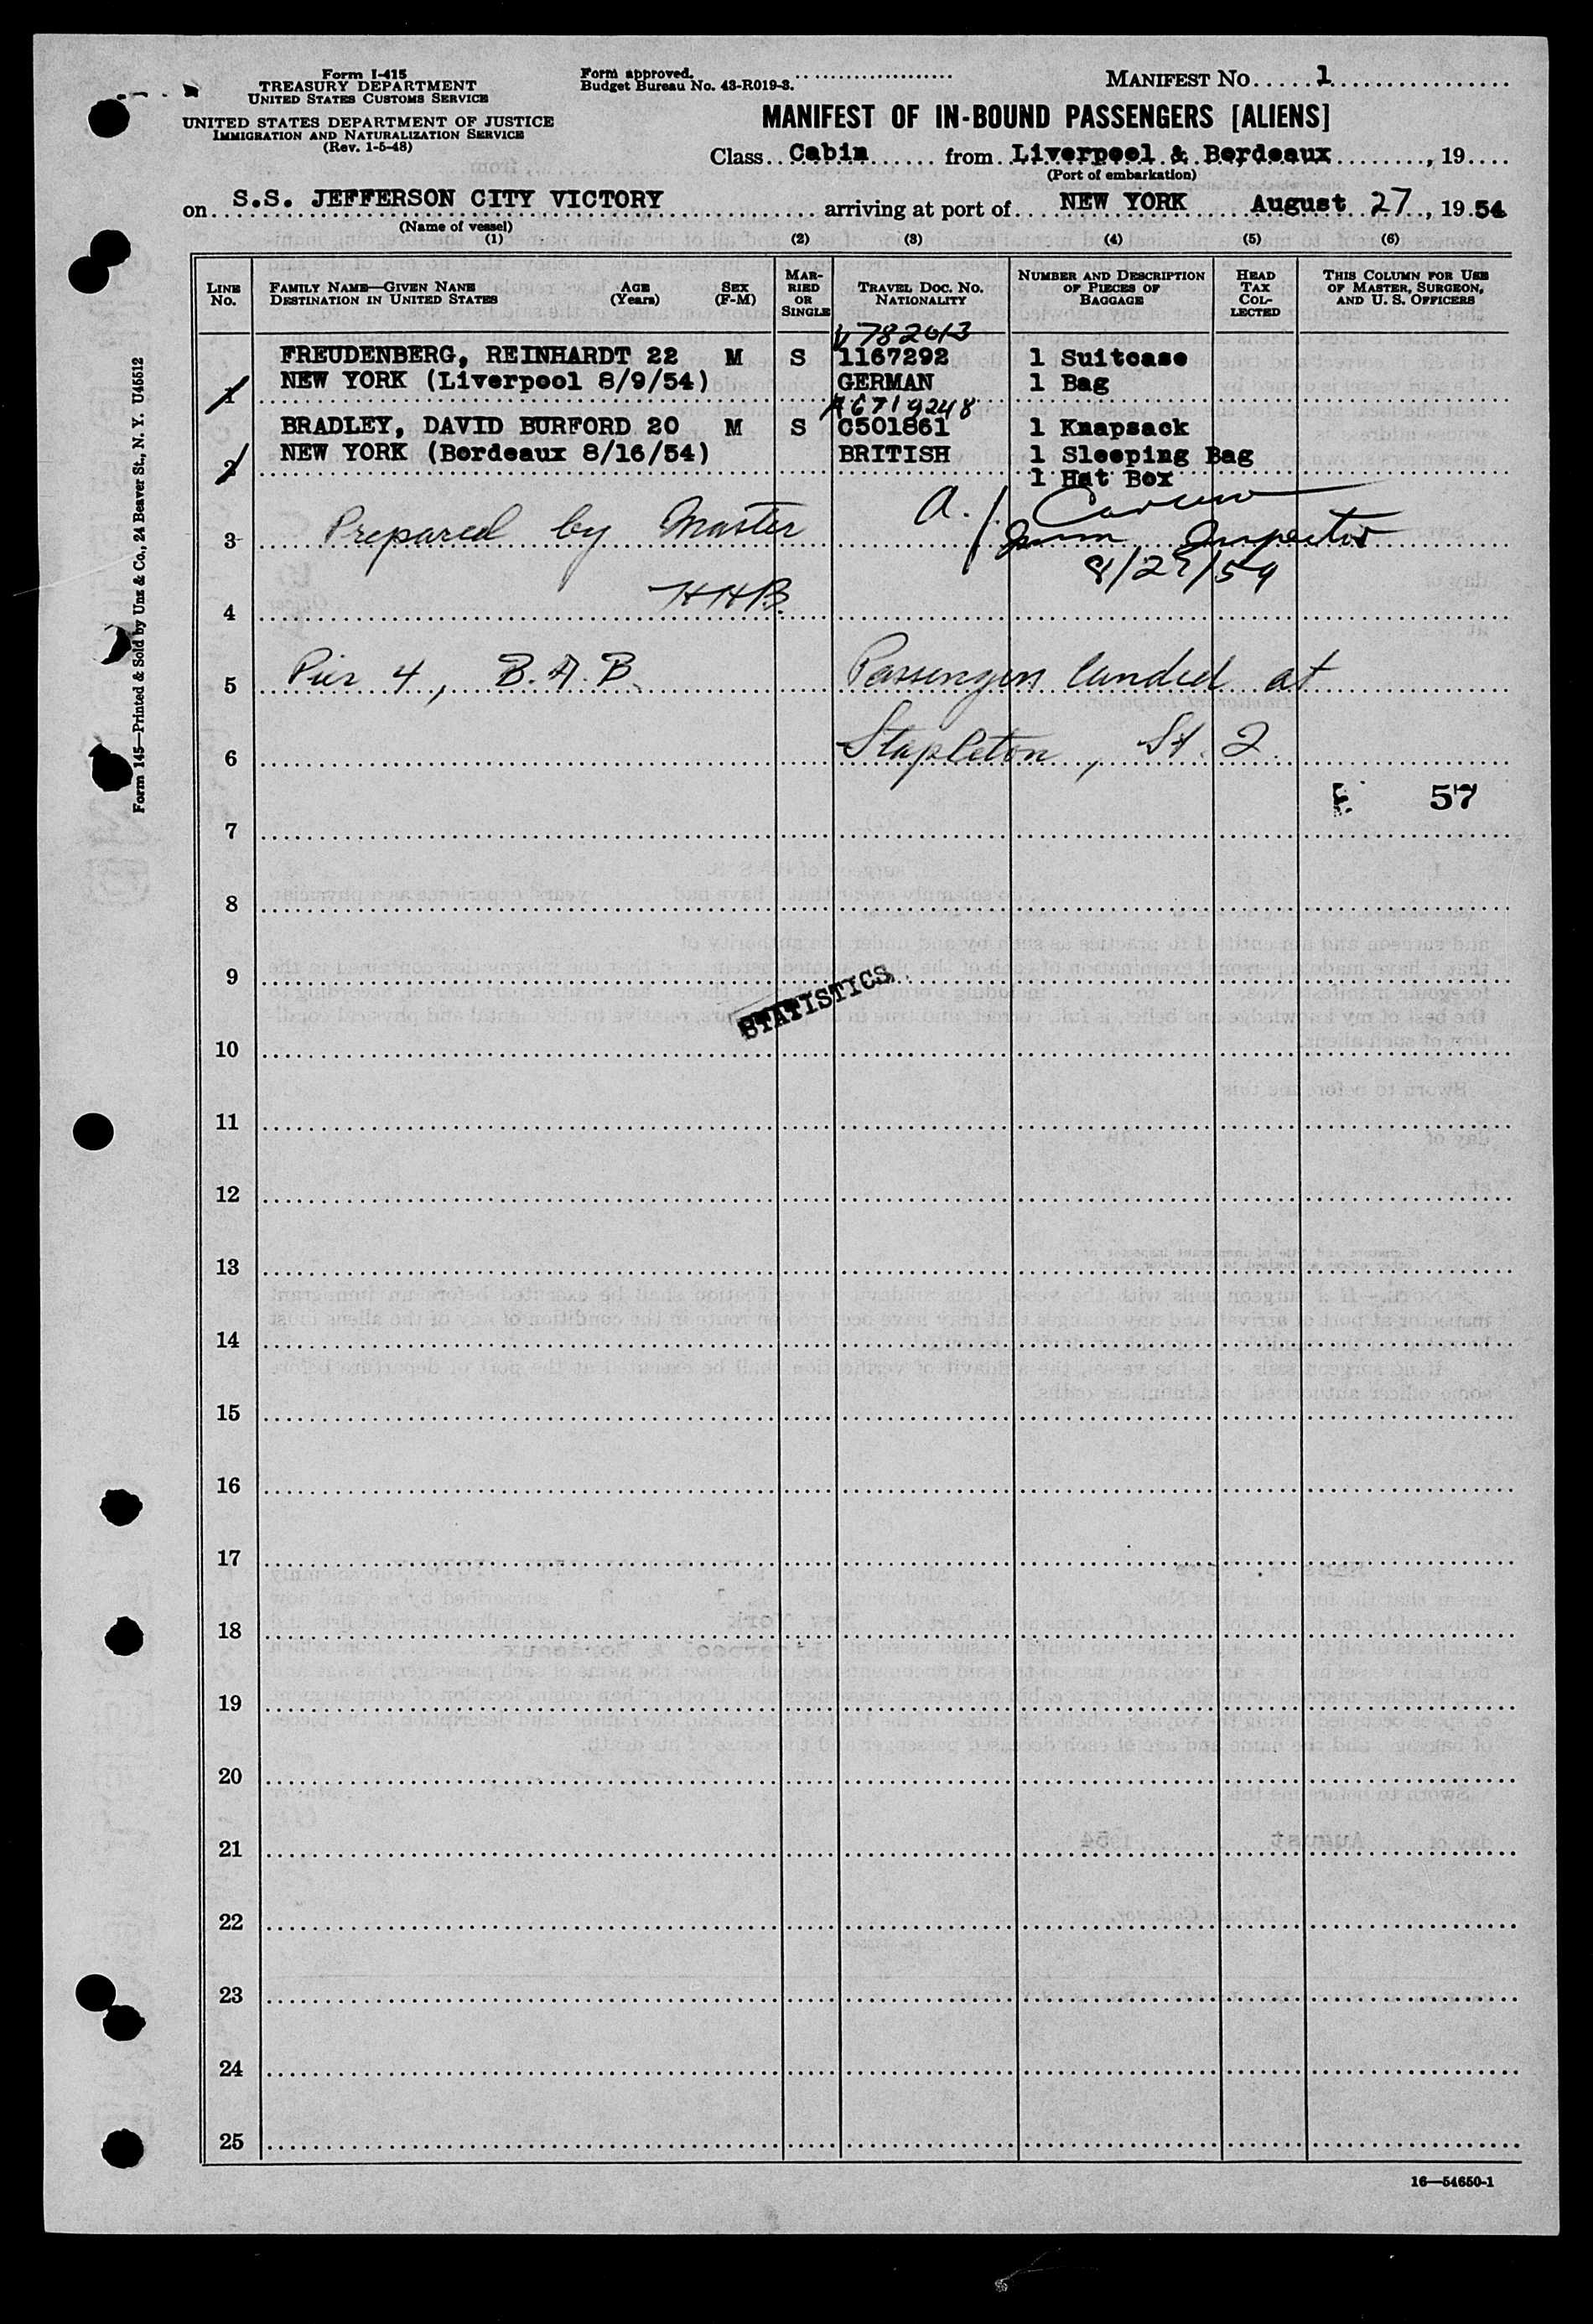 Form I-415
TREASURY DEPARTMENT
UNITED STATES CUSTOMS SERVICE
UNITED STATES DEPARTMENT OF JUSTICE
IMMIGRATION AND NATURALIZATION SERVICE
(Rev. 1-5-48)
Form approved.
Budget Bureau No. 43-R019-3.
MANIFEST NO. 1
MANIFEST OF IN-BOUND PASSENGERS [ALIENS]
Class Cabin from Liverpool & Bordeaux, 19
(Port of embarkation)
on S.S. JEFFERSON CITY VICTORY arriving at port of NEW YORK August 27, 1954
(Name of vessel)
(1) (2) (3) (4) (5) (6)
LINE NO. FAMILY NAME—GIVEN NAME DESTINATION IN UNITED STATES AGE (Years) SEX (F-M) MARRIED OR SINGLE TRAVEL DOC. NO. NATIONALITY NUMBER AND DESCRIPTION OF PIECES OF BAGGAGE HEAD TAX COLLECTED THIS COLUMN FOR USE OF MASTER, SURGEON, AND U. S. OFFICERS
V782013
FREUDENBERG, REINHARDT 22 M S 1167292 1 Suitcase
1 NEW YORK (Liverpool 8/9/54) GERMAN 1 Bag
A6719248
BRADLEY, DAVID BURFORD 20 M S C501861 1 Knapsack
2 NEW YORK (Bordeaux 8/16/54) BRITISH 1 Sleeping Bag
1 Hat Box
A. J.
3 Prepared by Master Imm Inspector
8/27/54
4 HHB
5 Pier 4, B.A.B. Passengers landed at
6 Stapleton, St. I.
57
7
8
9
STATISTICS
10
11
12
13
14
15
16
17
18
19
20
21
22
23
24
25
16—54650-1
Form 145—Printed & Sold by Unz & Co., 24 Beaver St., N. Y. U45512